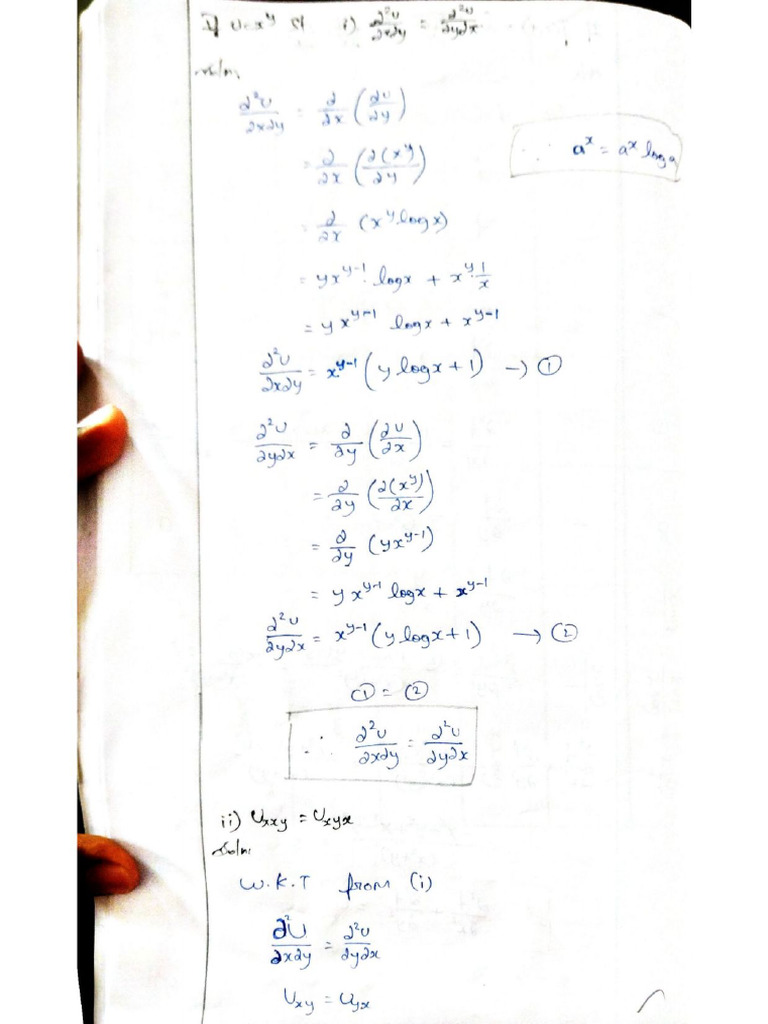 If U=x^y ST i) ∂²U/∂x∂y = ∂²U/∂y∂x
Soln:
∂²U/∂x∂y = ∂/∂x (∂U/∂y)
= ∂/∂x (∂(x^y)/∂y)
∵ a^x = a^x log a
= ∂/∂x (x^y logx)
= yx^(y-1) · logx + x^y · 1/x
= y x^(y-1) logx + x^(y-1)
∂²U/∂x∂y = x^(y-1) (y logx + 1) → ①
∂²U/∂y∂x = ∂/∂y (∂U/∂x)
= ∂/∂y (∂(x^y)/∂x)
= ∂/∂y (yx^(y-1))
= y x^(y-1) logx + x^(y-1)
∂²U/∂y∂x = x^(y-1) (y logx + 1) → ②
① = ②
∴ ∂²U/∂x∂y = ∂²U/∂y∂x
ii) Uxxy = Uxyx
Soln:
W.K.T from (i)
∂²U/∂x∂y = ∂²U/∂y∂x
Uxy = Uyx